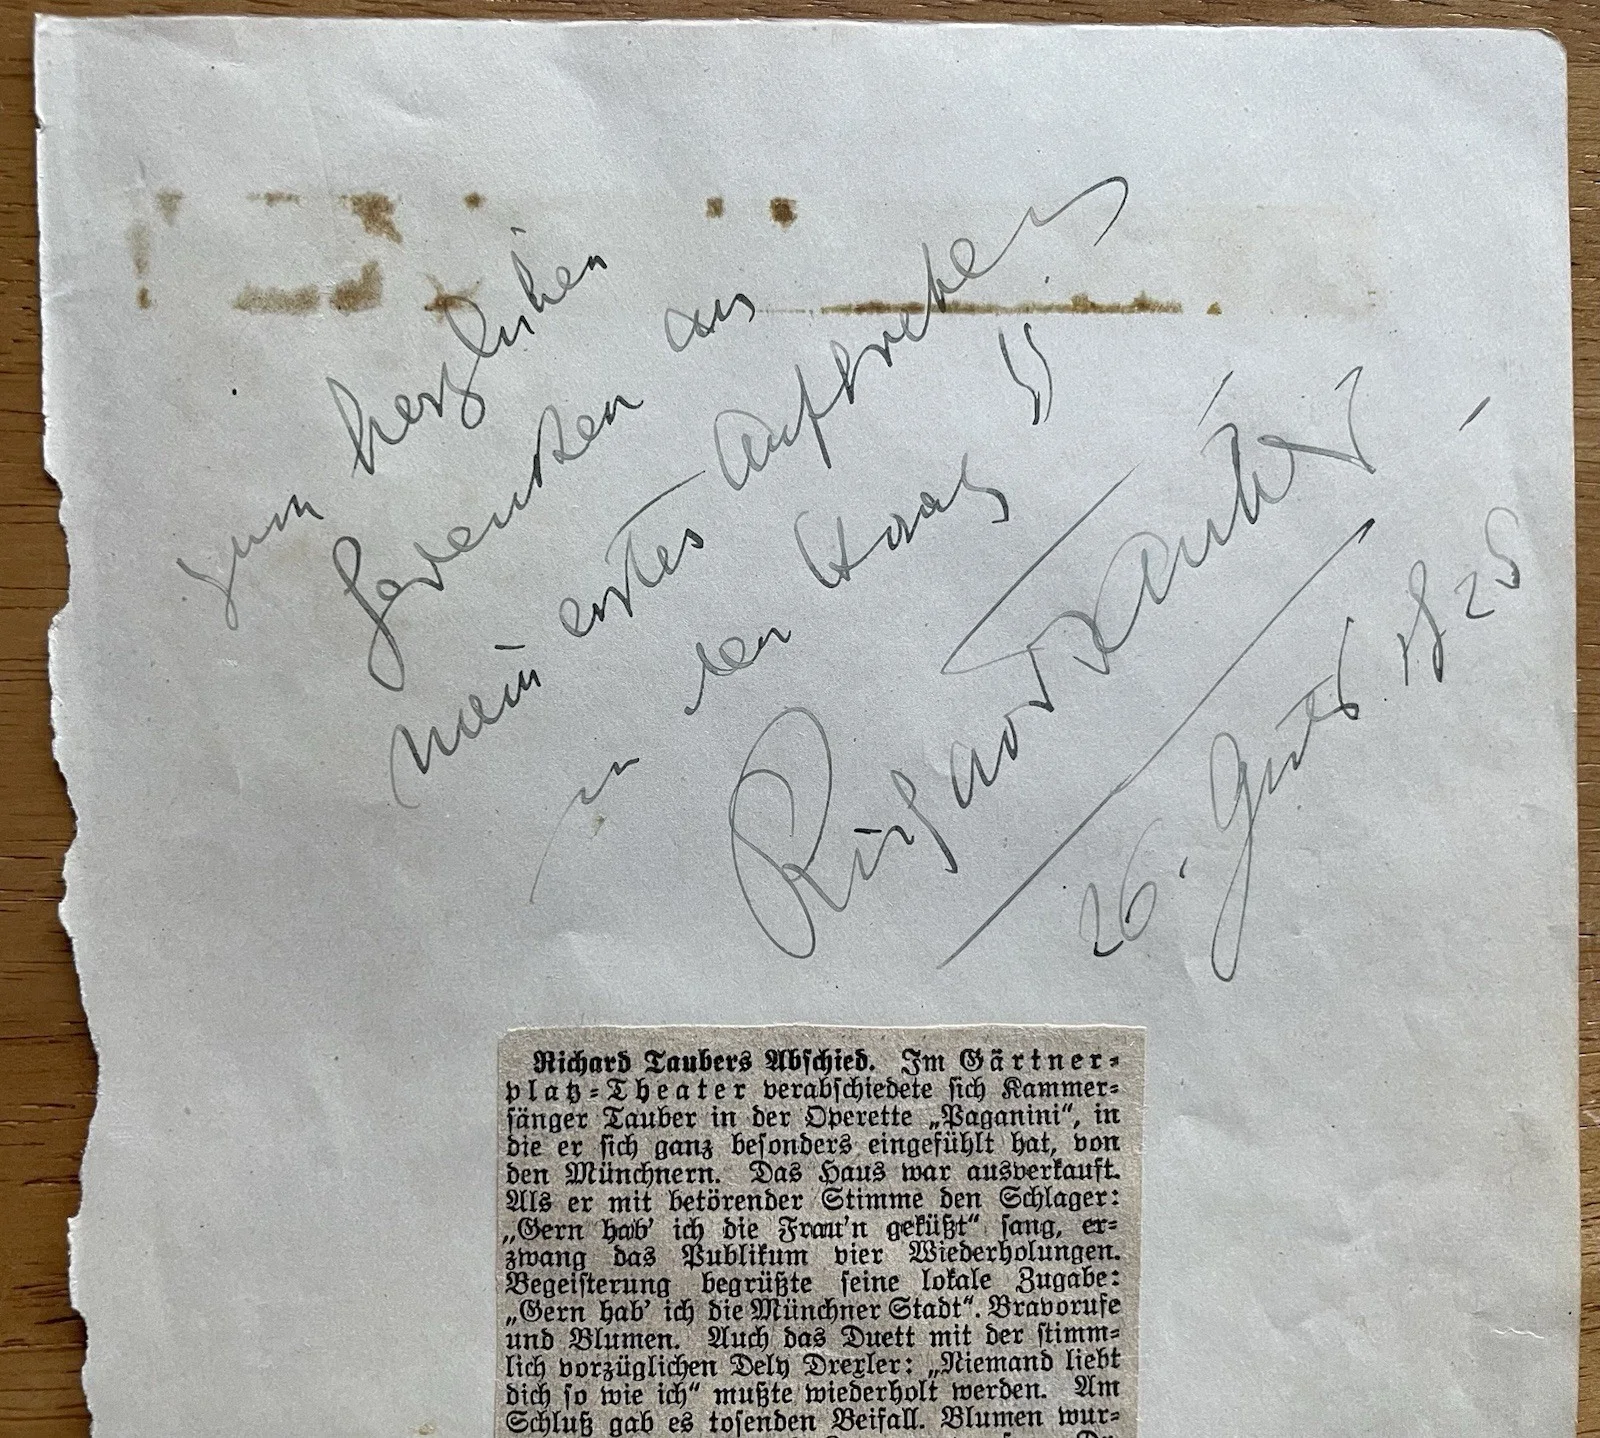 zum herzlichen
Gedenken an
mein erstes Auftreten
in den Haag
Richard Tauber
26.
Richard Taubers Abschied. Im Gärtner-
platz-Theater verabschiedete sich Kammer-
sänger Tauber in der Operette „Paganini“, in
die er sich ganz besonders eingefühlt hat, von
den Münchnern. Das Haus war ausverkauft.
Als er mit betörender Stimme den Schlager:
„Gern hab’ ich die Frau’n geküßt“ sang, er-
zwang das Publikum vier Wiederholungen.
Begeisterung begrüßte seine lokale Zugabe:
„Gern hab’ ich die Münchner Stadt“. Bravorufe
und Blumen. Auch das Duett mit der stimm-
lich vorzüglichen Dely Drexler: „Niemand liebt
dich so wie ich“ mußte wiederholt werden. Am
Schluß gab es tosenden Beifall. Blumen wur-